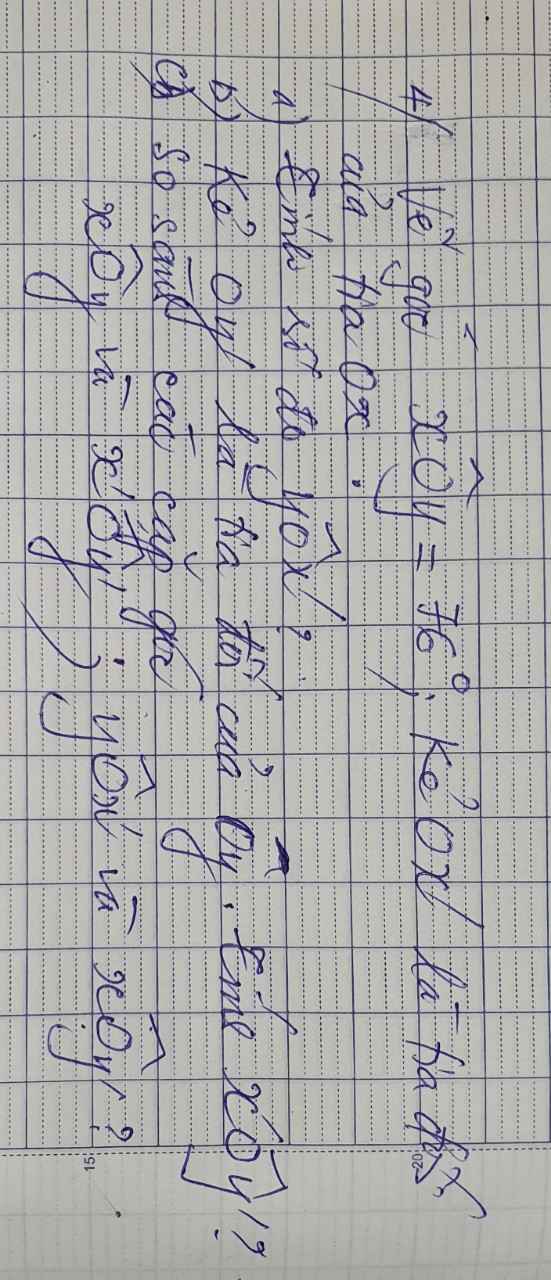 4/ Vẽ góc xÔy = 76°, kẻ Ox' là tia đối
của tia Ox.
a) Tính số đo yÔx'?
b) Kẻ Oy' là tia đối của Oy. Tính x'Ôy'?
c) So sánh các cặp góc
xÔy và x'Ôy'; yÔx' và xÔy'?
20
15